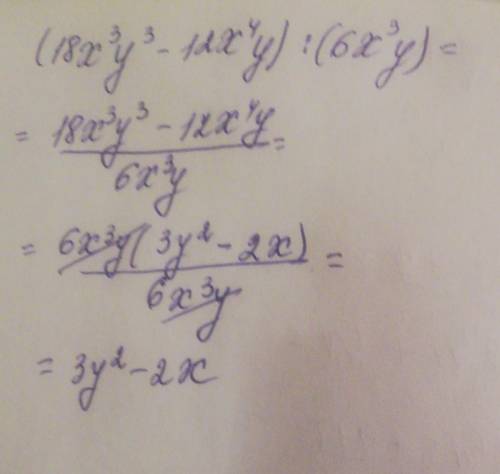 (18x³y³ - 12x⁴y) : (6x³y) =
= 18x³y³ - 12x⁴y =
6x³y
= 6x³y(3y² - 2x) =
6x³y
= 3y² - 2x